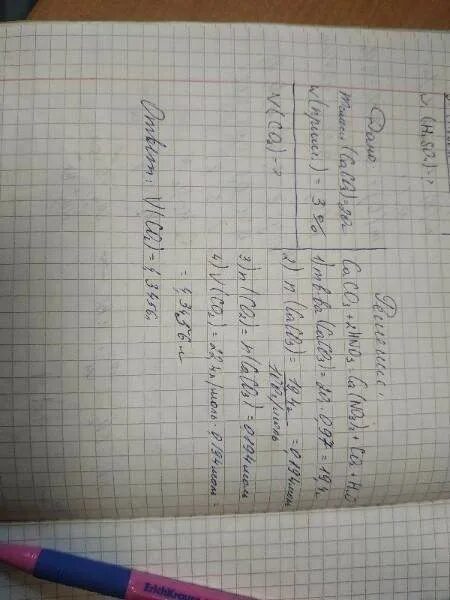 V(H₂SO₄)-?
Дано:
mсмеси (CaCO₃)=20г
w(прим.) = 3%
V(CO₂)-?
Решение:
CaCO₃+2HNO₃=Ca(NO₃)₂+CO₂+H₂O
1) mв-ва (CaCO₃)=20·0,97=19,4г
2) n (CaCO₃) = 19,4г / 100г/моль = 0,194моль
3) n (CO₂)= n(CaCO₃) = 0,194моль
4) V(CO₂) = 22,4л/моль·0,194моль=
= 4,3456 л
Ответ: V(CO₂)=4,3456л
ErichKrause